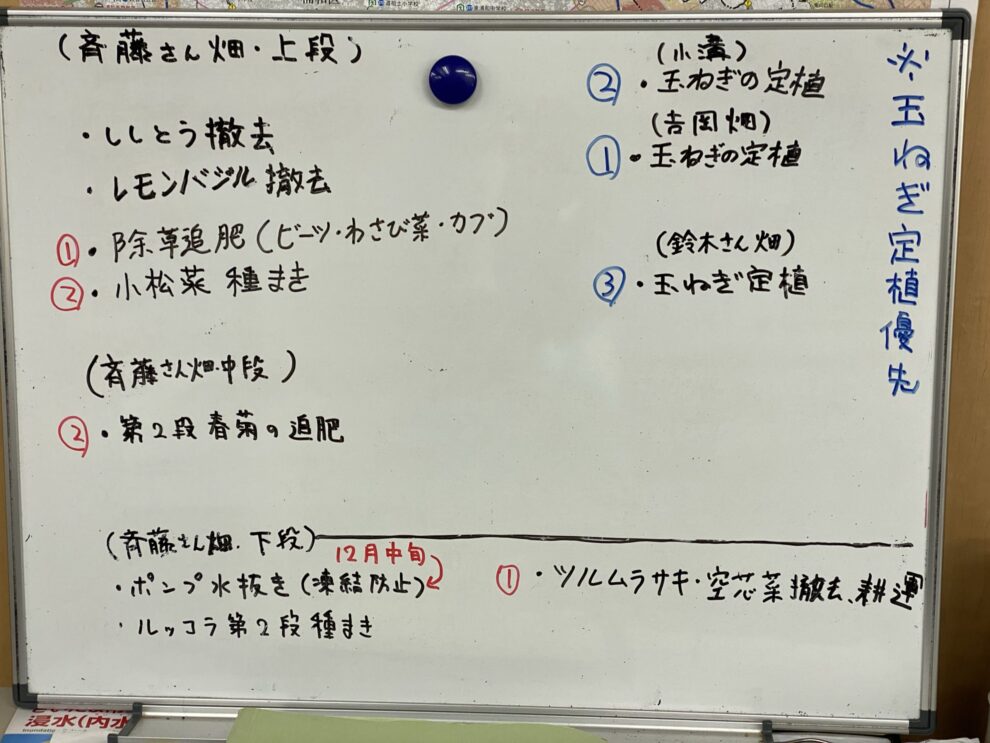 (斉藤さん畑・上段)
・ししとう撤去
・レモンバジル撤去
①・除草追肥(ビーツ・わさび菜・カブ)
②・小松菜 種まき
(斉藤さん畑・中段)
②・第2段春菊の追肥
(斉藤さん畑・下段)
12月中旬
・ポンプ水抜き(凍結防止)
・ルッコラ第2段種まき
①・ツルムラサキ・空芯菜撤去、耕運
(小溝)
②・玉ねぎの定植
(吉岡畑)
①・玉ねぎの定植
(鈴木さん畑)
③・玉ねぎ定植
※玉ねぎ定植優先
浸水(内水